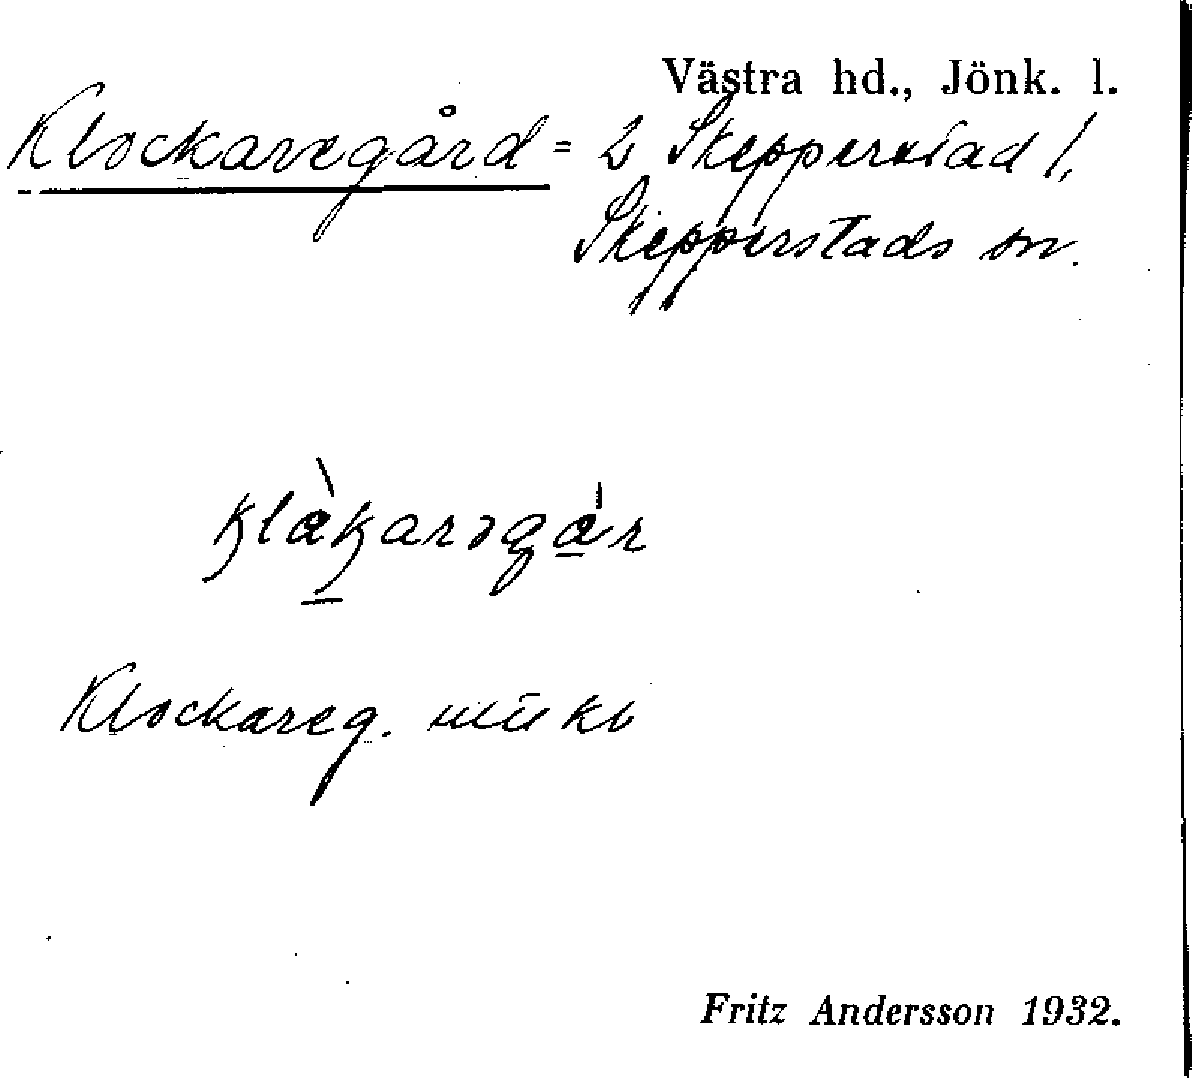 Västra hd., Jönk. l.
Klockaregård = 2 Skepperstad 1,
Skepperstads sn.
klàkarəgár
Klockareg. mtlkv
Fritz Andersson 1932.